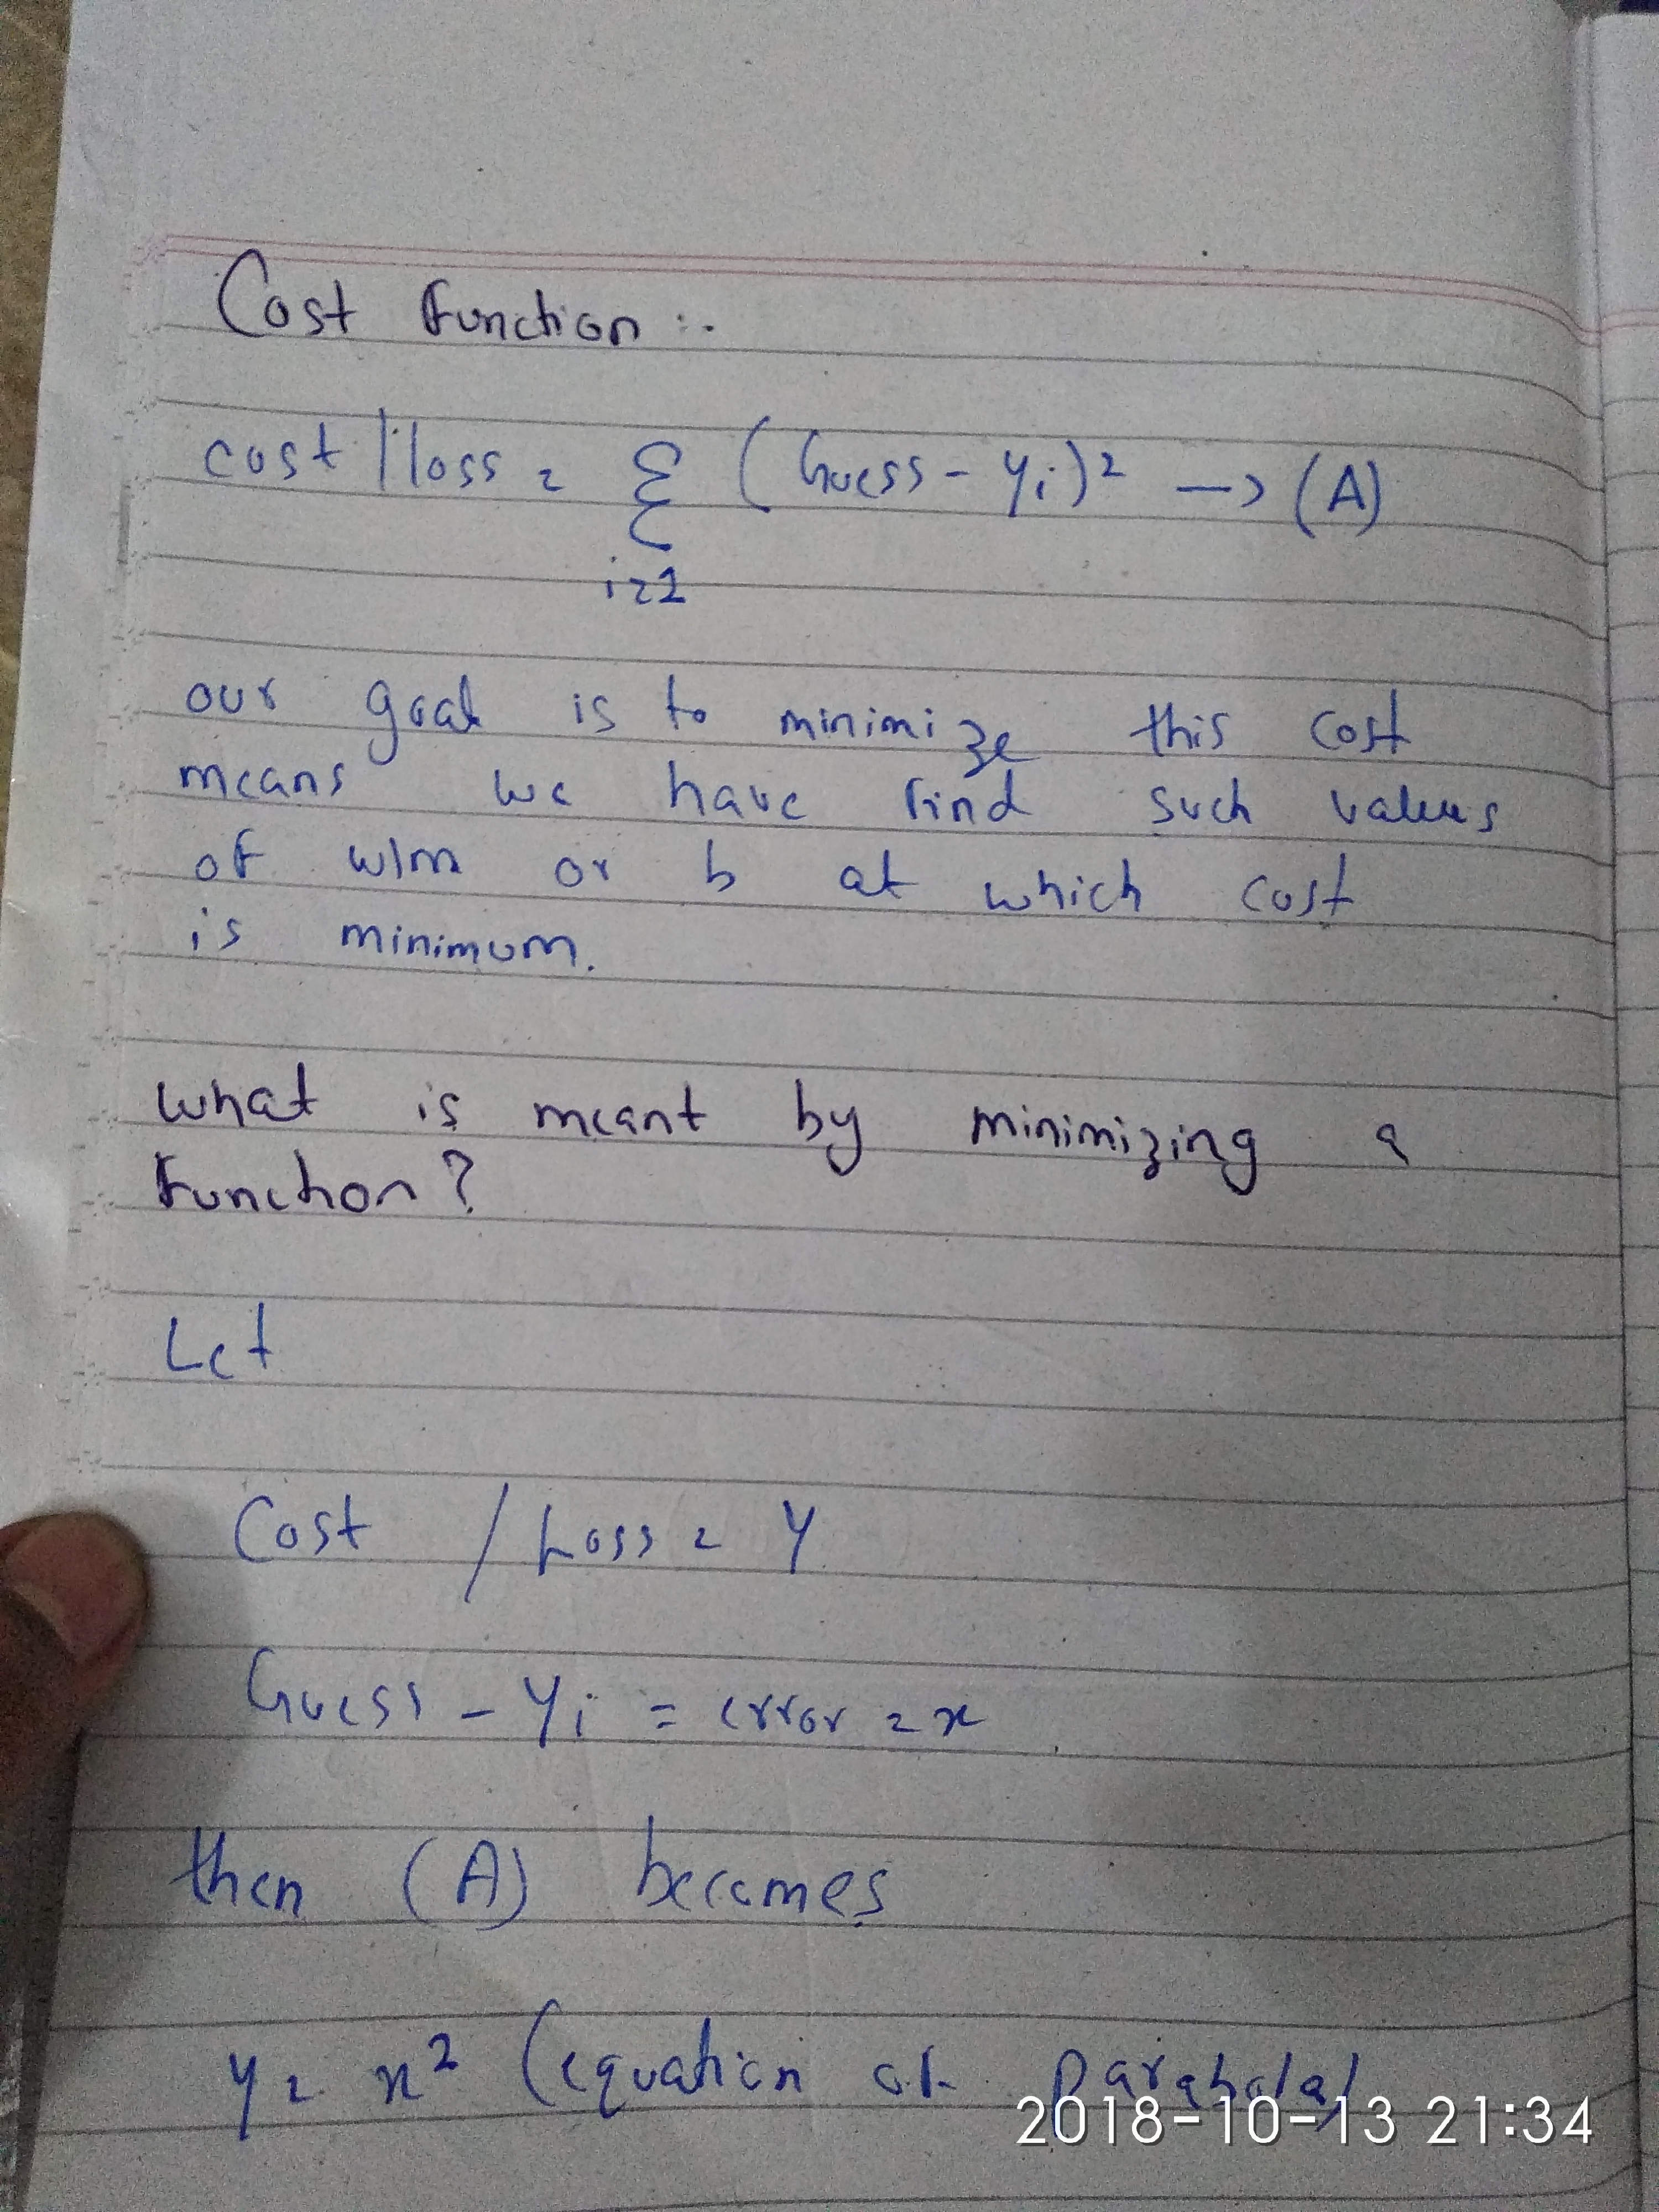 Cost Function :.
cost / loss = Σ (Guess - yi)² → (A)
i=1
our goal is to minimize this cost
means we have find such values
of w/m or b at which cost
is minimum.
what is meant by minimizing a
Function?
Let
Cost / Loss = y
Guess - yi = error = x
then (A) becomes
y = x² (equation of parabola)
2018-10-13 21:34